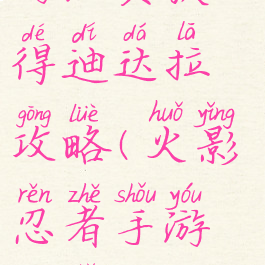 dé dí dá lā
得迪达拉
gōng lüè huǒ yǐng
攻略(火影
rěn zhě shǒu yóu
忍者手游